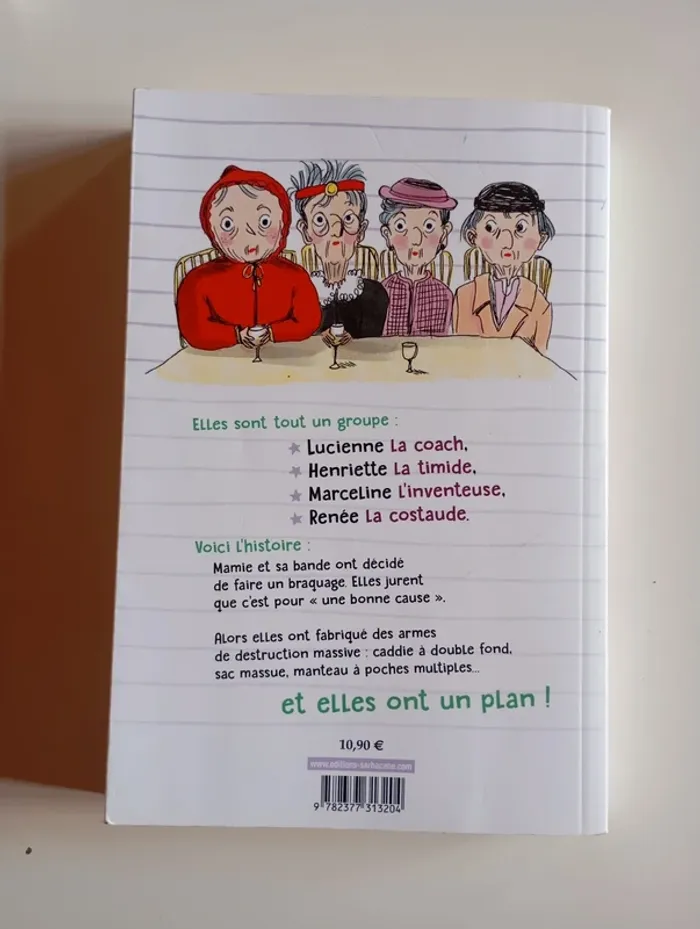 Elles sont tout un groupe :
Lucienne La coach,
Henriette La timide,
Marceline L'inventeuse,
Renée La costaude.
Voici l'histoire :
Mamie et sa bande ont décidé
de faire un braquage. Elles jurent
que c'est pour « une bonne cause ».
Alors elles ont fabriqué des armes
de destruction massive : caddie à double fond,
sac massue, manteau à poches multiples...
et elles ont un plan !
10,90 €
www.editions-sarbacane.com
9 782377 313204